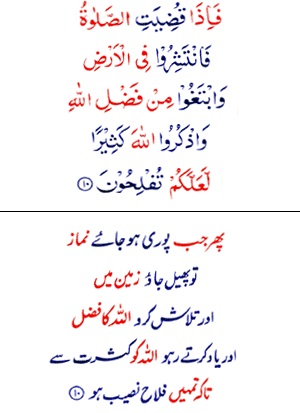 فَاِذَا قُضِیَتِ الصَّلٰوةُ
فَانْتَشِرُوْا فِی الْاَرْضِ
وَابْتَغُوْا مِنْ فَضْلِ اللهِ
وَاذْكُرُوا اللهَ كَثِیْرًا
لَّعَلَّكُمْ تُفْلِحُوْنَ ۝۱۰
پھر جب پوری ہو جائے نماز
تو پھیل جاؤ زمین میں
اور تلاش کرو اللہ کا فضل
اور یاد کرتے رہو اللہ کو کثرت سے
تاکہ تمہیں فلاح نصیب ہو ۝۱۰